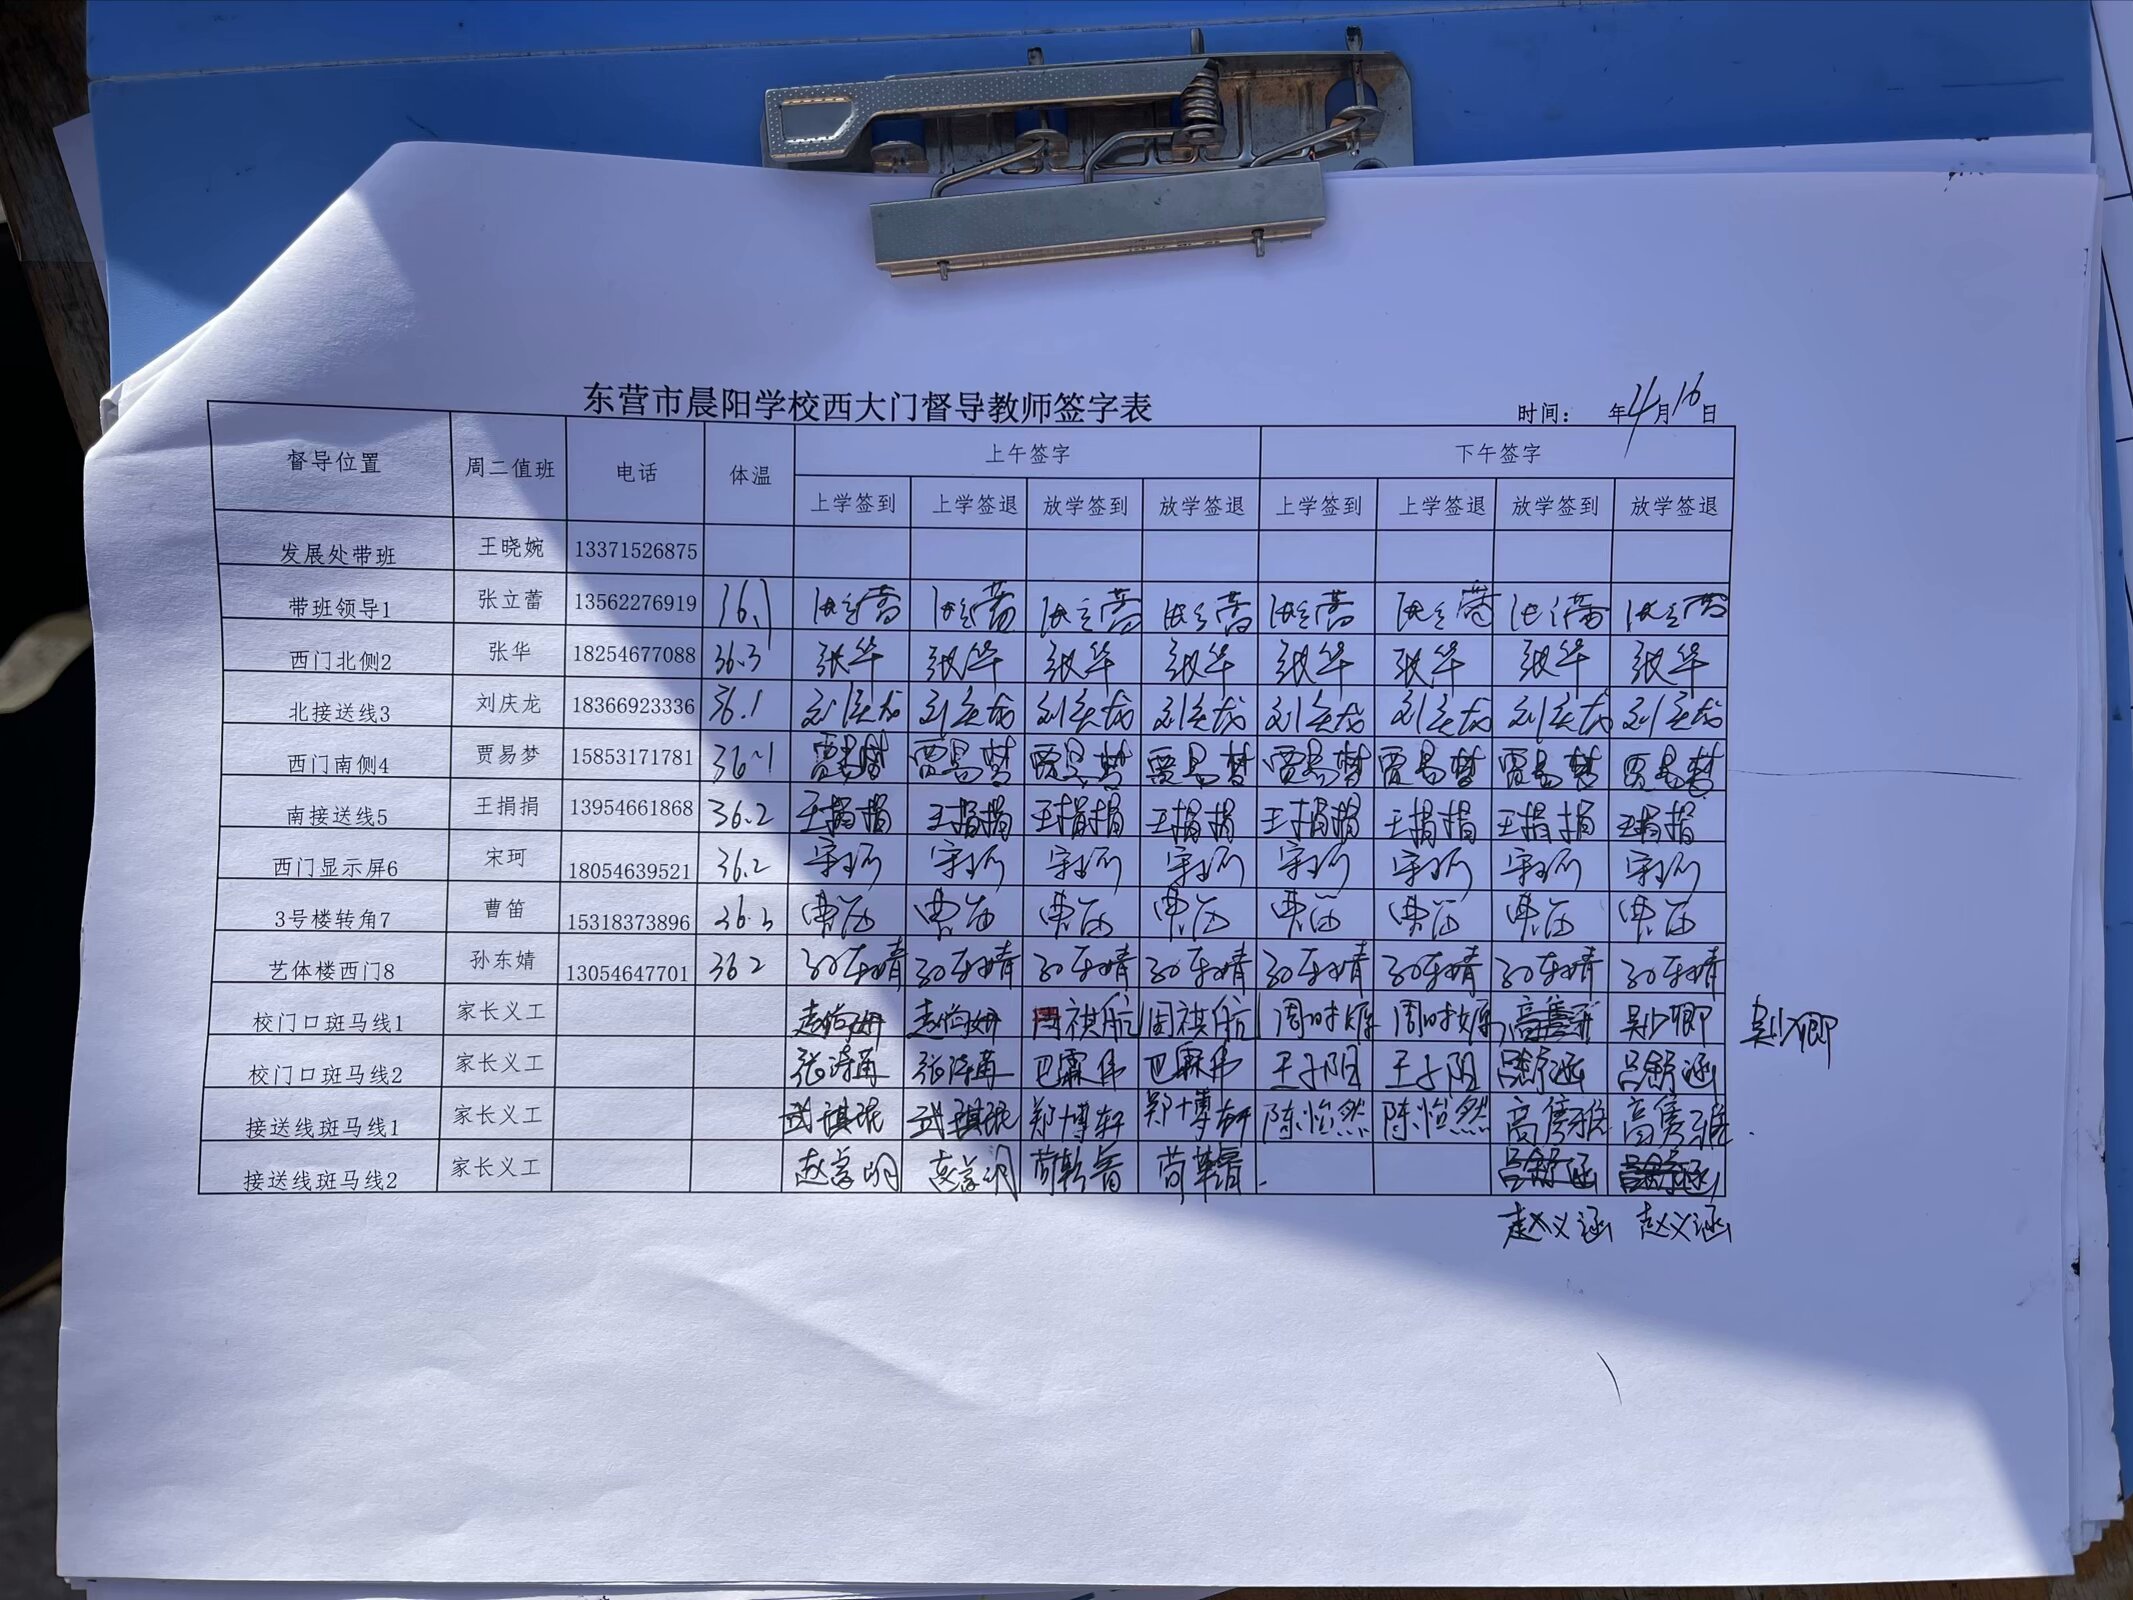 东营市晨阳学校西大门督导教师签字表
时间： 年4月16日
督导位置 周二值班 电话 体温 上午签字 下午签字
上学签到 上学签退 放学签到 放学签退 上学签到 上学签退 放学签到 放学签退
发展处带班 王晓婉 13371526875
带班领导1 张立蕾 13562276919 36.1 张立蕾 张立蕾 张立蕾 张立蕾 张立蕾 张立蕾 张立蕾 张立蕾
西门北侧2 张华 18254677088 36.3 张华 张华 张华 张华 张华 张华 张华 张华
北接送线3 刘庆龙 18366923336 36.1 刘庆龙 刘庆龙 刘庆龙 刘庆龙 刘庆龙 刘庆龙 刘庆龙 刘庆龙
西门南侧4 贾易梦 15853171781 36~1 贾易梦 贾易梦 贾易梦 贾易梦 贾易梦 贾易梦 贾易梦 贾易梦
南接送线5 王捐捐 13954661868 36.2 王捐捐 王捐捐 王捐捐 王捐捐 王捐捐 王捐捐 王捐捐 王捐捐
西门显示屏6 宋珂 18054639521 36.2 宋珂 宋珂 宋珂 宋珂 宋珂 宋珂 宋珂 宋珂
3号楼转角7 曹笛 15318373896 36.3 曹笛 曹笛 曹笛 曹笛 曹笛 曹笛 曹笛 曹笛
艺体楼西门8 孙东婧 13054647701 36.2 孙东婧 孙东婧 孙东婧 孙东婧 孙东婧 孙东婧 孙东婧 孙东婧
校门口斑马线1 家长义工 赵尚妍 赵尚妍 周祺航 周祺航 吴少卿 吴少卿
校门口斑马线2 家长义工 巴霖伟 巴霖伟 王子阳 王子阳 吕舒涵 吕舒涵
接送线斑马线1 家长义工 武祺琨 武祺琨 郑博轩 郑博轩 陈怡然 陈怡然 高隽雅 高隽雅
接送线斑马线2 家长义工
赵义涵 赵义涵